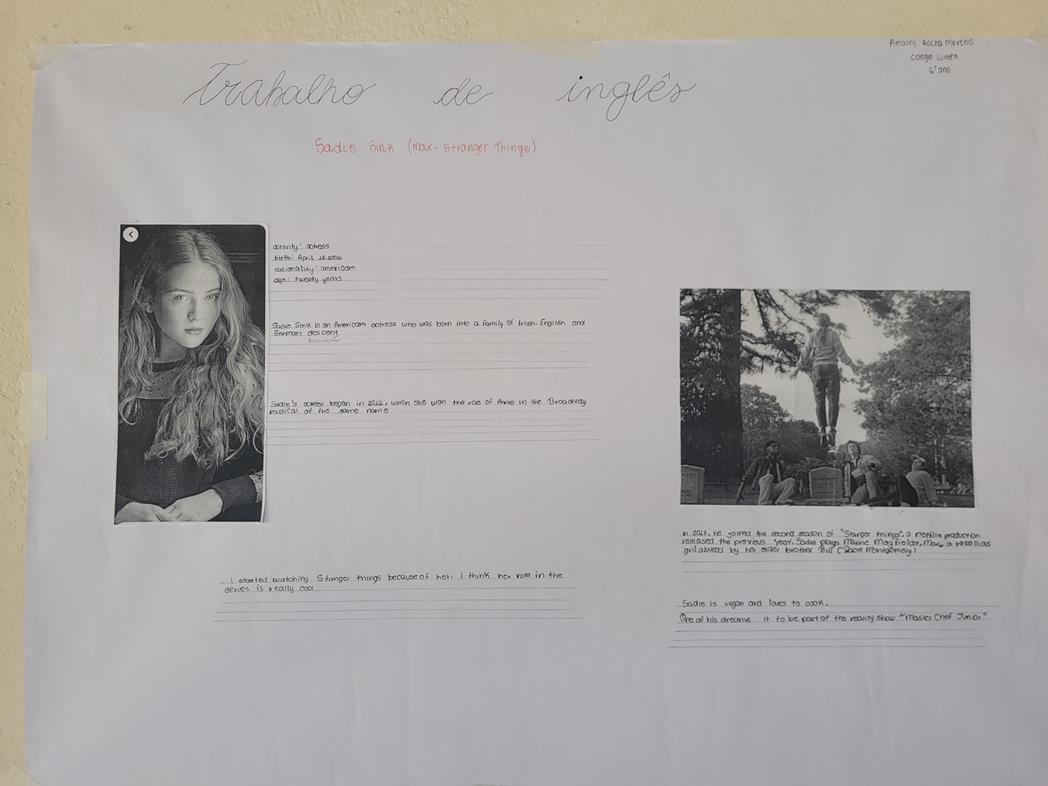 Amaury Rocha Moreno
Colégio Lumen
6° ano
Trabalho de inglês
Sadie Sink (max- Stranger Things)
activity: actress
birth: April
nationality: american
age: twenty years
Sadie Sink is an American actress who was born into a family of Irish. English and
German descent
Sadie's career began in 2012, when she won the role of Annie in the Broadway
musical of the same name
I started watching Stanger things because of her. I think her role in the
series is really cool
in 2017, he joined the second season of "Stanger things", a netflix production
released the previous year. Sadie plays Maxine Magfields, Max, a
girl abused by her older brother Bill (Dacre Montgomery)
Sadie is vegan and loves to cook.
One of his dreams it to be part of the reality show "Master Chef Junior"